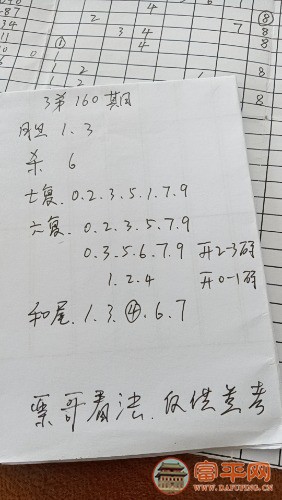 3第160期
胆 1.3
杀 6
七复. 0.2.3.5.1.7.9
六复. 0.2.3.5.7.9
0.3.5.6.7.9 开2-3码
1.2.4 开0-1码
和尾. 1.3.④.6.7
票哥看法.仅供参考
富平网
WWW.DAFUPING.CN